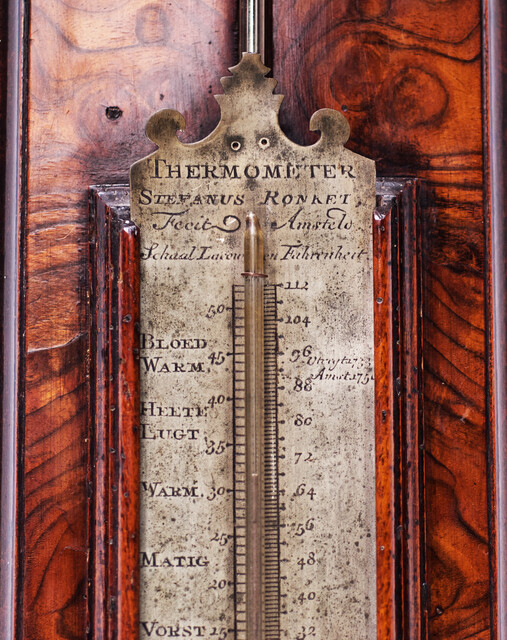 THERMOMETER
STEFANUS RONKET,
Fecit Amstelo
Schaal Fahrenheit
112
50 104
BLOED WARM 45 96 1733
88 Amst
40 80
HEETE LUGT 35 72
WARM. 30 64
25 56
MATIG 48
20 40
VORST 15 32